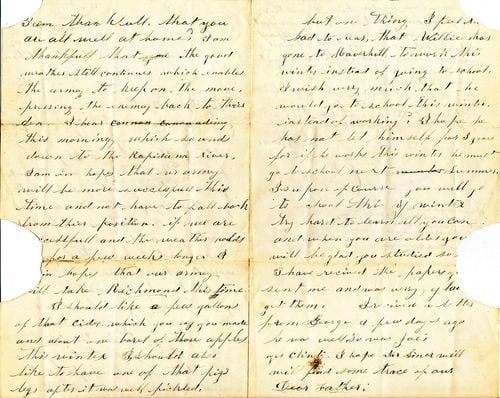 I am thankfull, that you
are all well at home? I am
thankfull that the good
weather still continues which enables
the army to keep on the move,
pressing the enemy back to their
den. I hear cannonading
this morning, which sound
down to the Rapidann River,
I am in hops that our army
will be more successfull this
time and not have to fall back
from their position. if we are
successfull and the weather holds
for a few week longer I
in hops that our army
will take Richmond this time
I should like a few gallons
of that Cider which you say you made
and about one barel of those apples
this winter I should also
like to have one of that pigs
legs after it was well pickled.
but one thing. I feel
bad to reas, that Willie has
gone to Haverhill to work this
winter instead of going to school.
I wish very much, that he
would go to school this winter
instead of working? I hope he
has not let himself for I year
for if he works this winter he must
go to school next summer
I suppose of course you will go
to school this winter
try hard to learn all you can
and when you are older you
will be glad you studied so.
I have recived the papers you
sent me and was very glad
get them. I recived a letter
from George a few days ago
he was well so was Joe's
I hope
will find some trace of our
Dear Father;